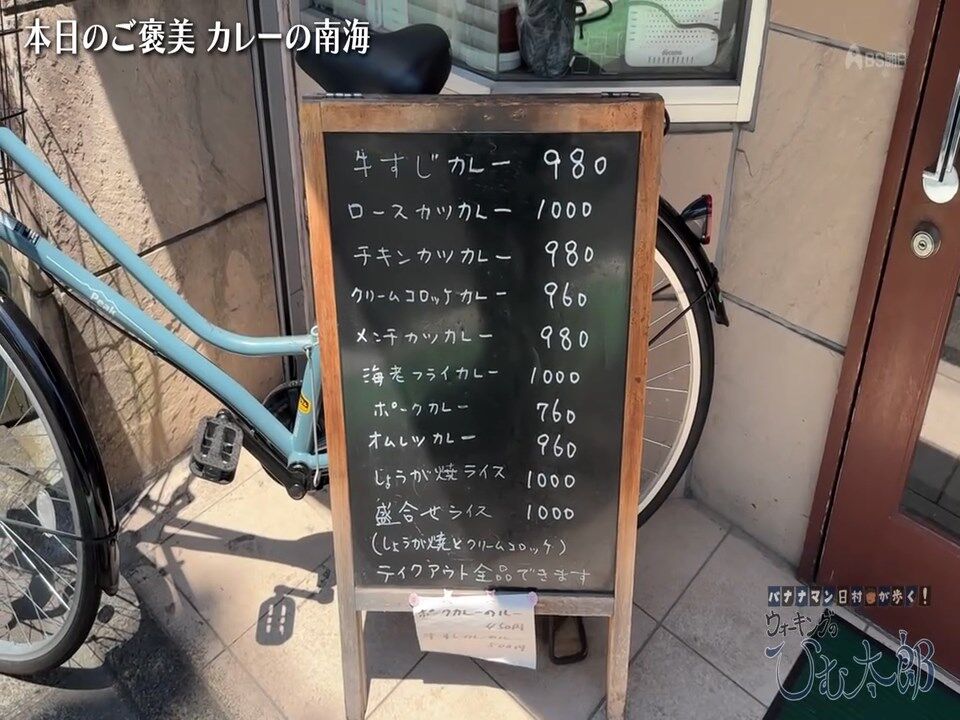 本日のご褒美 カレーの南海
BS朝日
牛すじカレー 980
ロースカツカレー 1000
チキンカツカレー 980
クリームコロッケカレー 960
メンチカツカレー 980
海老フライカレー 1000
ポークカレー 760
オムレツカレー 960
しょうが焼ライス 1000
盛合せライス 1000
(しょうが焼とクリームコロッケ)
テイクアウト全品できます
ポークカレーのルー
450円
500円
Peak
バナナマン日村が歩く!
ウォーキングの
ひむ太郎